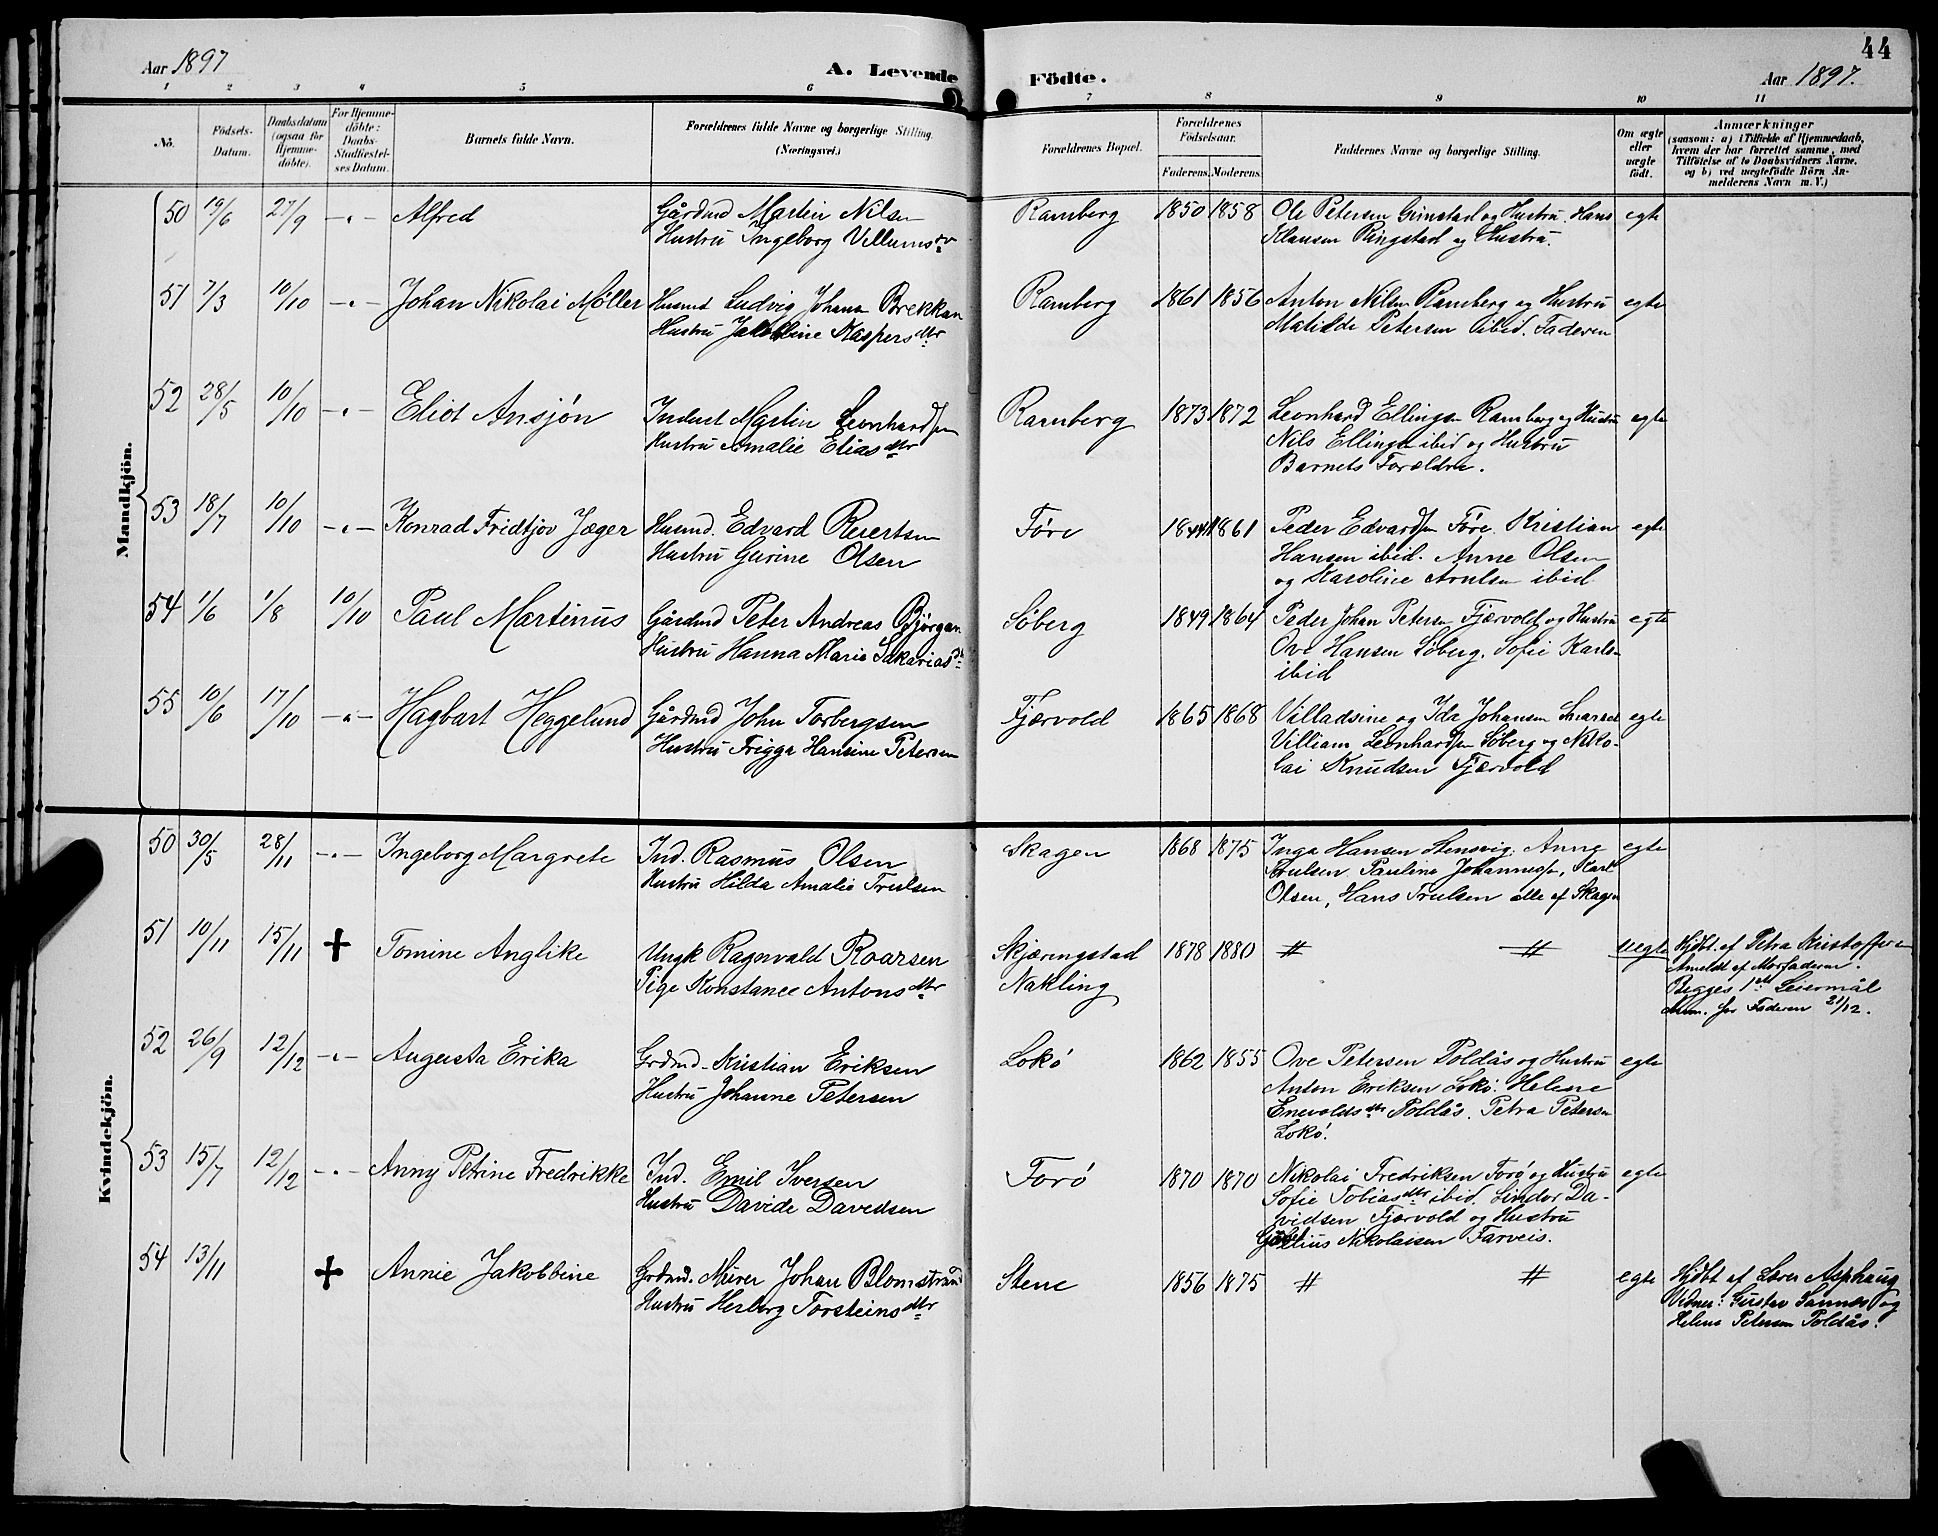 44
Aar 1897
A. Levende Födte.
Aar 1897.
1 2 3 4 5 6 7 8 9 10 11
No.
Födsels-
Datum.
Daabsdatum
(ogsaa for
Hjemme-
døbte).
For Hjemme-
döbte:
Daabs-
Stadfæstel-
ses Datum.
Barnets fulde Navn.
Forældrenes fulde Navne og borgerlige Stilling.
(Næringsvei.)
Forældrenes Bopæl.
Forældrenes
Födselsaar.
Faderens. Moderens.
Faddernes Navne og borgerlige Stilling.
Om ægte
eller
uægte
födt.
Anmærkninger
(saasom: a) i Tilfælde af Hjemmedaab,
hvem der har forrettet samme, med
Tilföielse af to Daabsvidners Navne.
og b) ved uægtefödte Börn An-
melderens Navn m. V.)
Mandkjön.
50 19/6 27/9 -"- Alfred Gårdmd Martin Nilsen Ramberg 1850 1858 Ole Petersen Grimstad og Hustru. Hans egte
Hustru Ingeborg Villumsdr Klausen Ringstad og Hustru.
51 7/3 10/10 -"- Johan Nikolai Møller Husmd Ludvig Johans Brekkan Ramberg 1861 1856 Anton Nilsen Ramberg og Hustru egte
Hustru Jakobbine Kaspersdtr Matilde Petersen ibid. Faderen
52 28/5 10/10 -"- Eliot Ansjøn Inderst Martin Leonhardsen Ramberg 1873 1872 Leonhard Ellingsen Ramberg og Hustru egte
Hustru Amalie Eliasdtr Nils Ellingsen ibid og Hustru
Barnets Forældre.
53 18/7 10/10 -"- Konrad Fridtjov Jæger Husmd. Edvard Reiertsen Føre 1844 1861 Peder Edvardsen Føre. Kristian egte
Hustru Gurine Olsen Hansen ibid. Anne Olsen
og Karoline Arntsen ibid
54 1/6 1/8 10/10 Paul Martinus Gårdmd Peter Andreas Bjørgan Søberg 1849 1864 Peder Johan Petersen Fjærvold og Hustru egte
Hustru Hanna Marie Sakariasdr Ove Hansen Søberg. Sofie Karlsen
ibid
55 10/6 17/10 -"- Hagbart Heggelund Gårdmd John Torbergsen Fjærvold 1865 1868 Villadsine og Ida Johansen egte
Hustru Frigga Hansine Petersen Villiam Leonhardsen Søberg og Niko-
lai Knudsen Fjærvold
Kvindekjön.
50 30/5 28/11 -"- Ingeborg Margrete Ind. Rasmus Olsen Skagen 1868 1875 Inga Hansen Stensvig. Anna egte
Hustru Hilda Amalie Trulsen Trulsen Pauline Johannesen, Karl
Olsen, Hans Trulsen alle af Skagen
51 10/11 15/11 + Tomine Anglike Ungk Ragnvald Roarsen Skjæringstad 1878 1880 # # uegte Hjdbt. af Petra Kristoffersen
Pige Konstance Antonsdtr Nakling Anmeldt af Morfaderen.
Begges 1ste Leiermål
Anm. for Faderen 21/12.
52 26/9 12/12 -"- Augusta Erika Grdmd. Kristian Eriksen Lokø 1862 1855 Ove Petersen Poldås og Hustru egte
Hustru Johanne Petersen Anton Eriksen Lokø. Helene
Enevoldsdtr Poldås. Petra Petersen
Lokø.
53 15/7 12/12 -"- Anny Petrine Fredrikke Ind. Emil Iversen Forø 1870 1870 Nikolai Fredriksen Forø og Hustru egte
Hustru Davide Davedsen Sofie Tobiasdtr ibid. Sindor Da-
vidsen Fjærvold og Hustru
Nikolaisen Farveis.
54 13/11 + Annie Jakobbine Grdmd. Murer Johan Blomstrand Stene 1856 1875 # # egte Hjdbt af Lærer Asphaug
Hustru Herborg Torsteinsdtr Vidner: Gustav Sannes og
Helene Petersen Poldås.